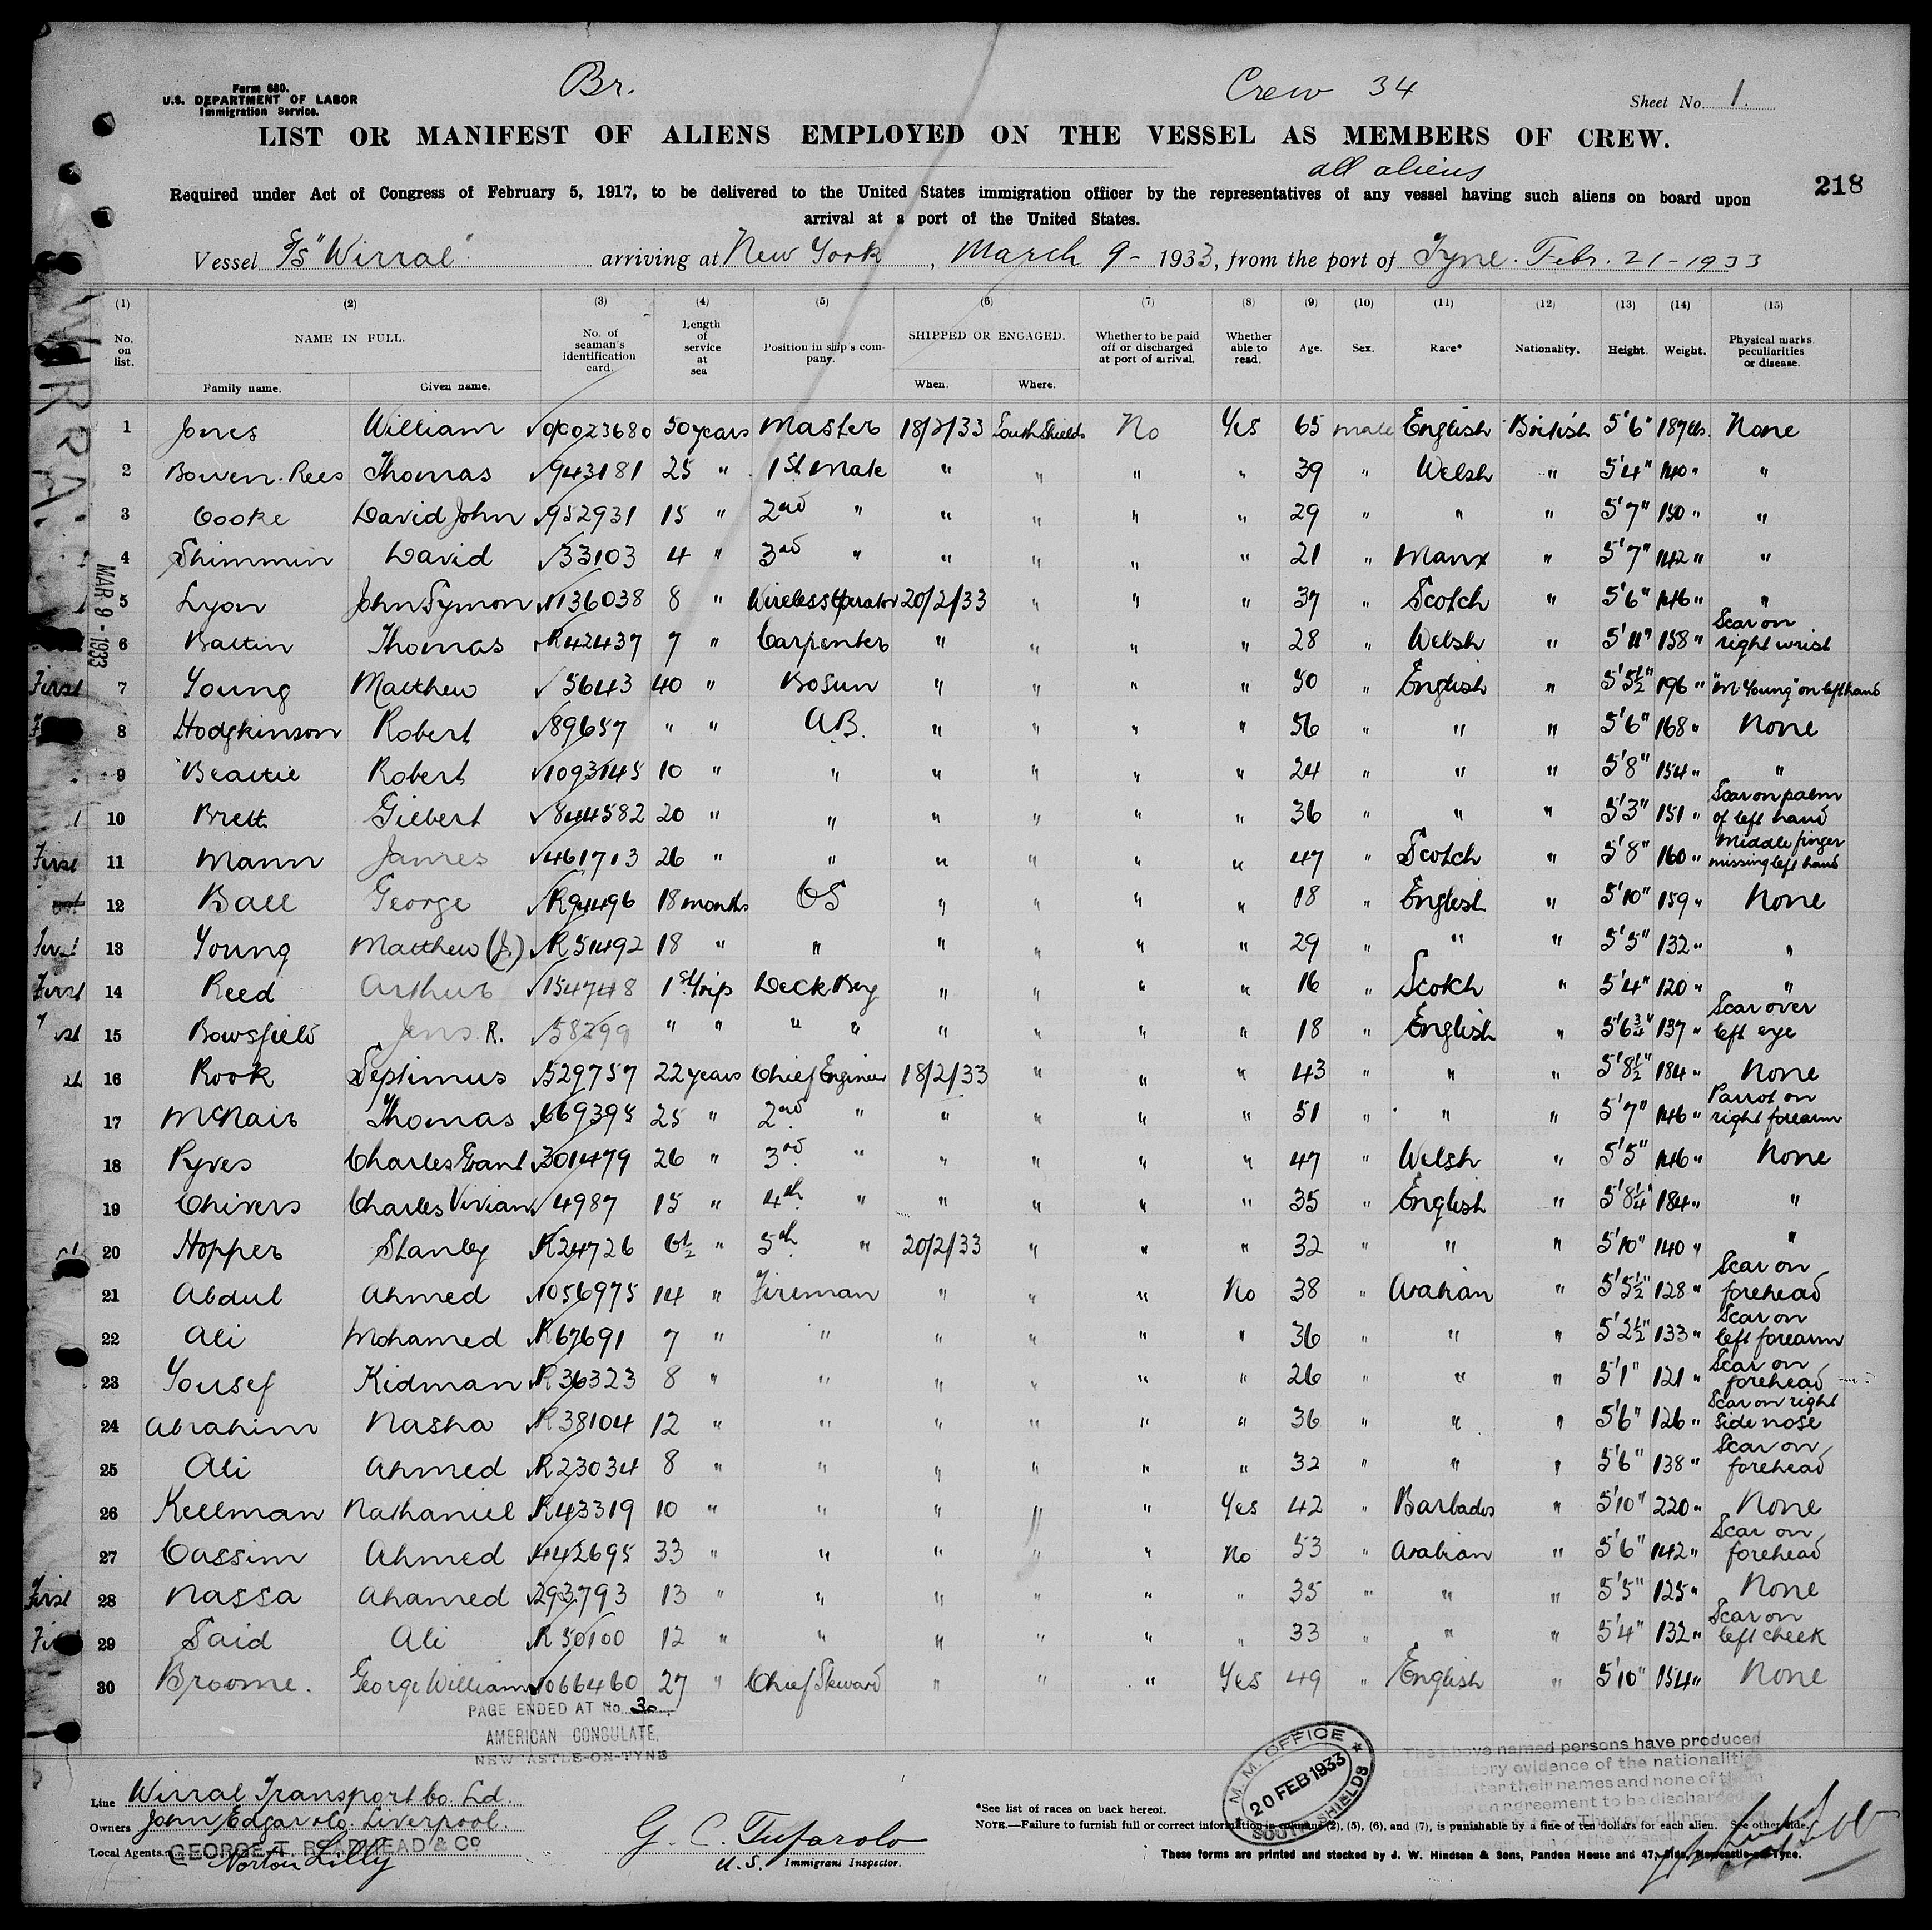 Form 680.
U.S. DEPARTMENT OF LABOR
Immigration Service.
Br.
Crew 34
Sheet No. 1.
LIST OR MANIFEST OF ALIENS EMPLOYED ON THE VESSEL AS MEMBERS OF CREW.
all aliens
218
Required under Act of Congress of February 5, 1917, to be delivered to the United States immigration officer by the representatives of any vessel having such aliens on board upon
arrival at a port of the United States.
Vessel S/S "Wirral" arriving at New York, March 9 - 1933, from the port of Tyne. Febr. 21-1933
(1) (2) (3) (4) (5) (6) (7) (8) (9) (10) (11) (12) (13) (14) (15)
No. on list. NAME IN FULL. Family name. Given name. No. of seaman's identification card. Length of service at sea Position in ship's company. SHIPPED OR ENGAGED. When. Where. Whether to be paid off or discharged at port of arrival. Whether able to read. Age. Sex. Race* Nationality. Height. Weight. Physical marks, peculiarities or disease.
WIRRAL
MAR 9 - 1933
1 Jones William 0/0023680 50 years Master 18/2/33 South Shields No Yes 65 male English British 5'6" 187lbs. None
2 Bowen-Rees Thomas 943181 25 " 1st Mate " " " " 39 " Welsh " 5'4" 140 " "
3 Cooke David John 952931 15 " 2nd " " " " " 29 " " " 5'7" 150 " "
4 Shimmin David 33103 4 " 3rd " " " " " 21 " Manx " 5'7" 142 " "
5 Lyon John Symon 1136038 8 " Wireless Operator 20/2/33 " " " 37 " Scotch " 5'6" 146 " "
6 Battin Thomas R42437 7 " Carpenter " " " " 28 " Welsh " 5'11" 158 " Scar on right wrist
First 7 Young Matthew 5643 40 " Bosun " " " " 50 " English " 5'5½" 196 " "M. Young" on left hand
8 Hodgkinson Robert 89657 " " A.B. " " " " 56 " " " 5'6" 168 " None
9 Beattie Robert 1093145 10 " " " " " " 24 " " " 5'8" 154 " "
10 Brett Gilbert 844582 20 " " " " " " 36 " " " 5'3" 151 " Scar on palm of left hand
First 11 Mann James 461713 26 " " " " " " 47 " Scotch " 5'8" 160 " Middle finger missing left hand
12 Ball George R94496 18 months OS " " " " 18 " English " 5'10" 159 " None
First 13 Young Matthew (J.) R51492 18 " " " " " " 29 " " " 5'5" 132 " "
First 14 Reed Arthur 154748 1st Trip Deck Boy " " " " 16 " Scotch " 5'4" 120 " "
15 Bowsfield R. 58299 " " " " " " " " 18 " English " 5'6¾" 137 " Scar over left eye
16 Rook Septimus 529757 22 years Chief Engineer 18/2/33 " " " 43 " " " 5'8½" 184 " None
17 McNair Thomas 669395 25 " 2nd " " " " " 51 " " " 5'7" 146 " Parrot on right forearm
18 Pyves Charles Grant 301479 26 " 3rd " " " " " 47 " Welsh " 5'5" 146 " None
19 Chivers Charles Vivian 4987 15 " 4th " " " " " 35 " English " 5'8¼" 184 " "
20 Hopper Stanley R24726 6½ " 5th " 20/2/33 " " " 32 " " " 5'10" 140 " "
21 Abdul Ahmed 1056975 14 " Fireman " " " No 38 " Arabian " 5'5½" 128 " Scar on forehead
22 Ali Mohamed R67691 7 " " " " " " 36 " " " 5'2½" 133 " Scar on left forearm
23 Yousef Kidman R36323 8 " " " " " " 26 " " " 5'1" 121 " Scar on forehead
24 Abrahim Nasha R38104 12 " " " " " " 36 " " " 5'6" 126 " Scar on right side nose
25 Ali Ahmed R23034 8 " " " " " " 32 " " " 5'6" 138 " Scar on forehead
26 Kellman Nathaniel R43319 10 " " " " " Yes 42 " Barbados " 5'10" 220 " None
27 Cassim Ahmed 442695 33 " " " " " No 53 " Arabian " 5'6" 142 " Scar on forehead
First 28 Nassa Ahamed 293793 13 " " " " " " 35 " " " 5'5" 125 " None
29 Said Ali R50100 12 " " " " " " 33 " " " 5'4" 132 " Scar on left cheek
30 Broome. George William 1066460 27 " Chief Steward " " " Yes 49 " English " 5'10" 154 " None
PAGE ENDED AT No. 30.
AMERICAN CONSULATE,
NEWCASTLE-ON-TYNE
M. M. OFFICE
20 FEB 1933
SOUTH SHIELDS
The above named persons have produced
satisfactory evidence of the nationalities
stated after their names and none of them
is under an agreement to be discharged
Line Wirral Transport Co. Ld.
Owners John Edgar & Co. Liverpool.
Local Agents GEORGE T. READHEAD & Co
Norton Lilly
G. C. Tufarolo
U.S. Immigrant Inspector.
*See list of races on back hereof.
NOTE.—Failure to furnish full or correct information in columns (2), (5), (6), and (7), is punishable by a fine of ten dollars for each alien. See other side.
These forms are printed and stocked by J. W. Hindson & Sons, Pandon House and 47, Side, Newcastle-on-Tyne.